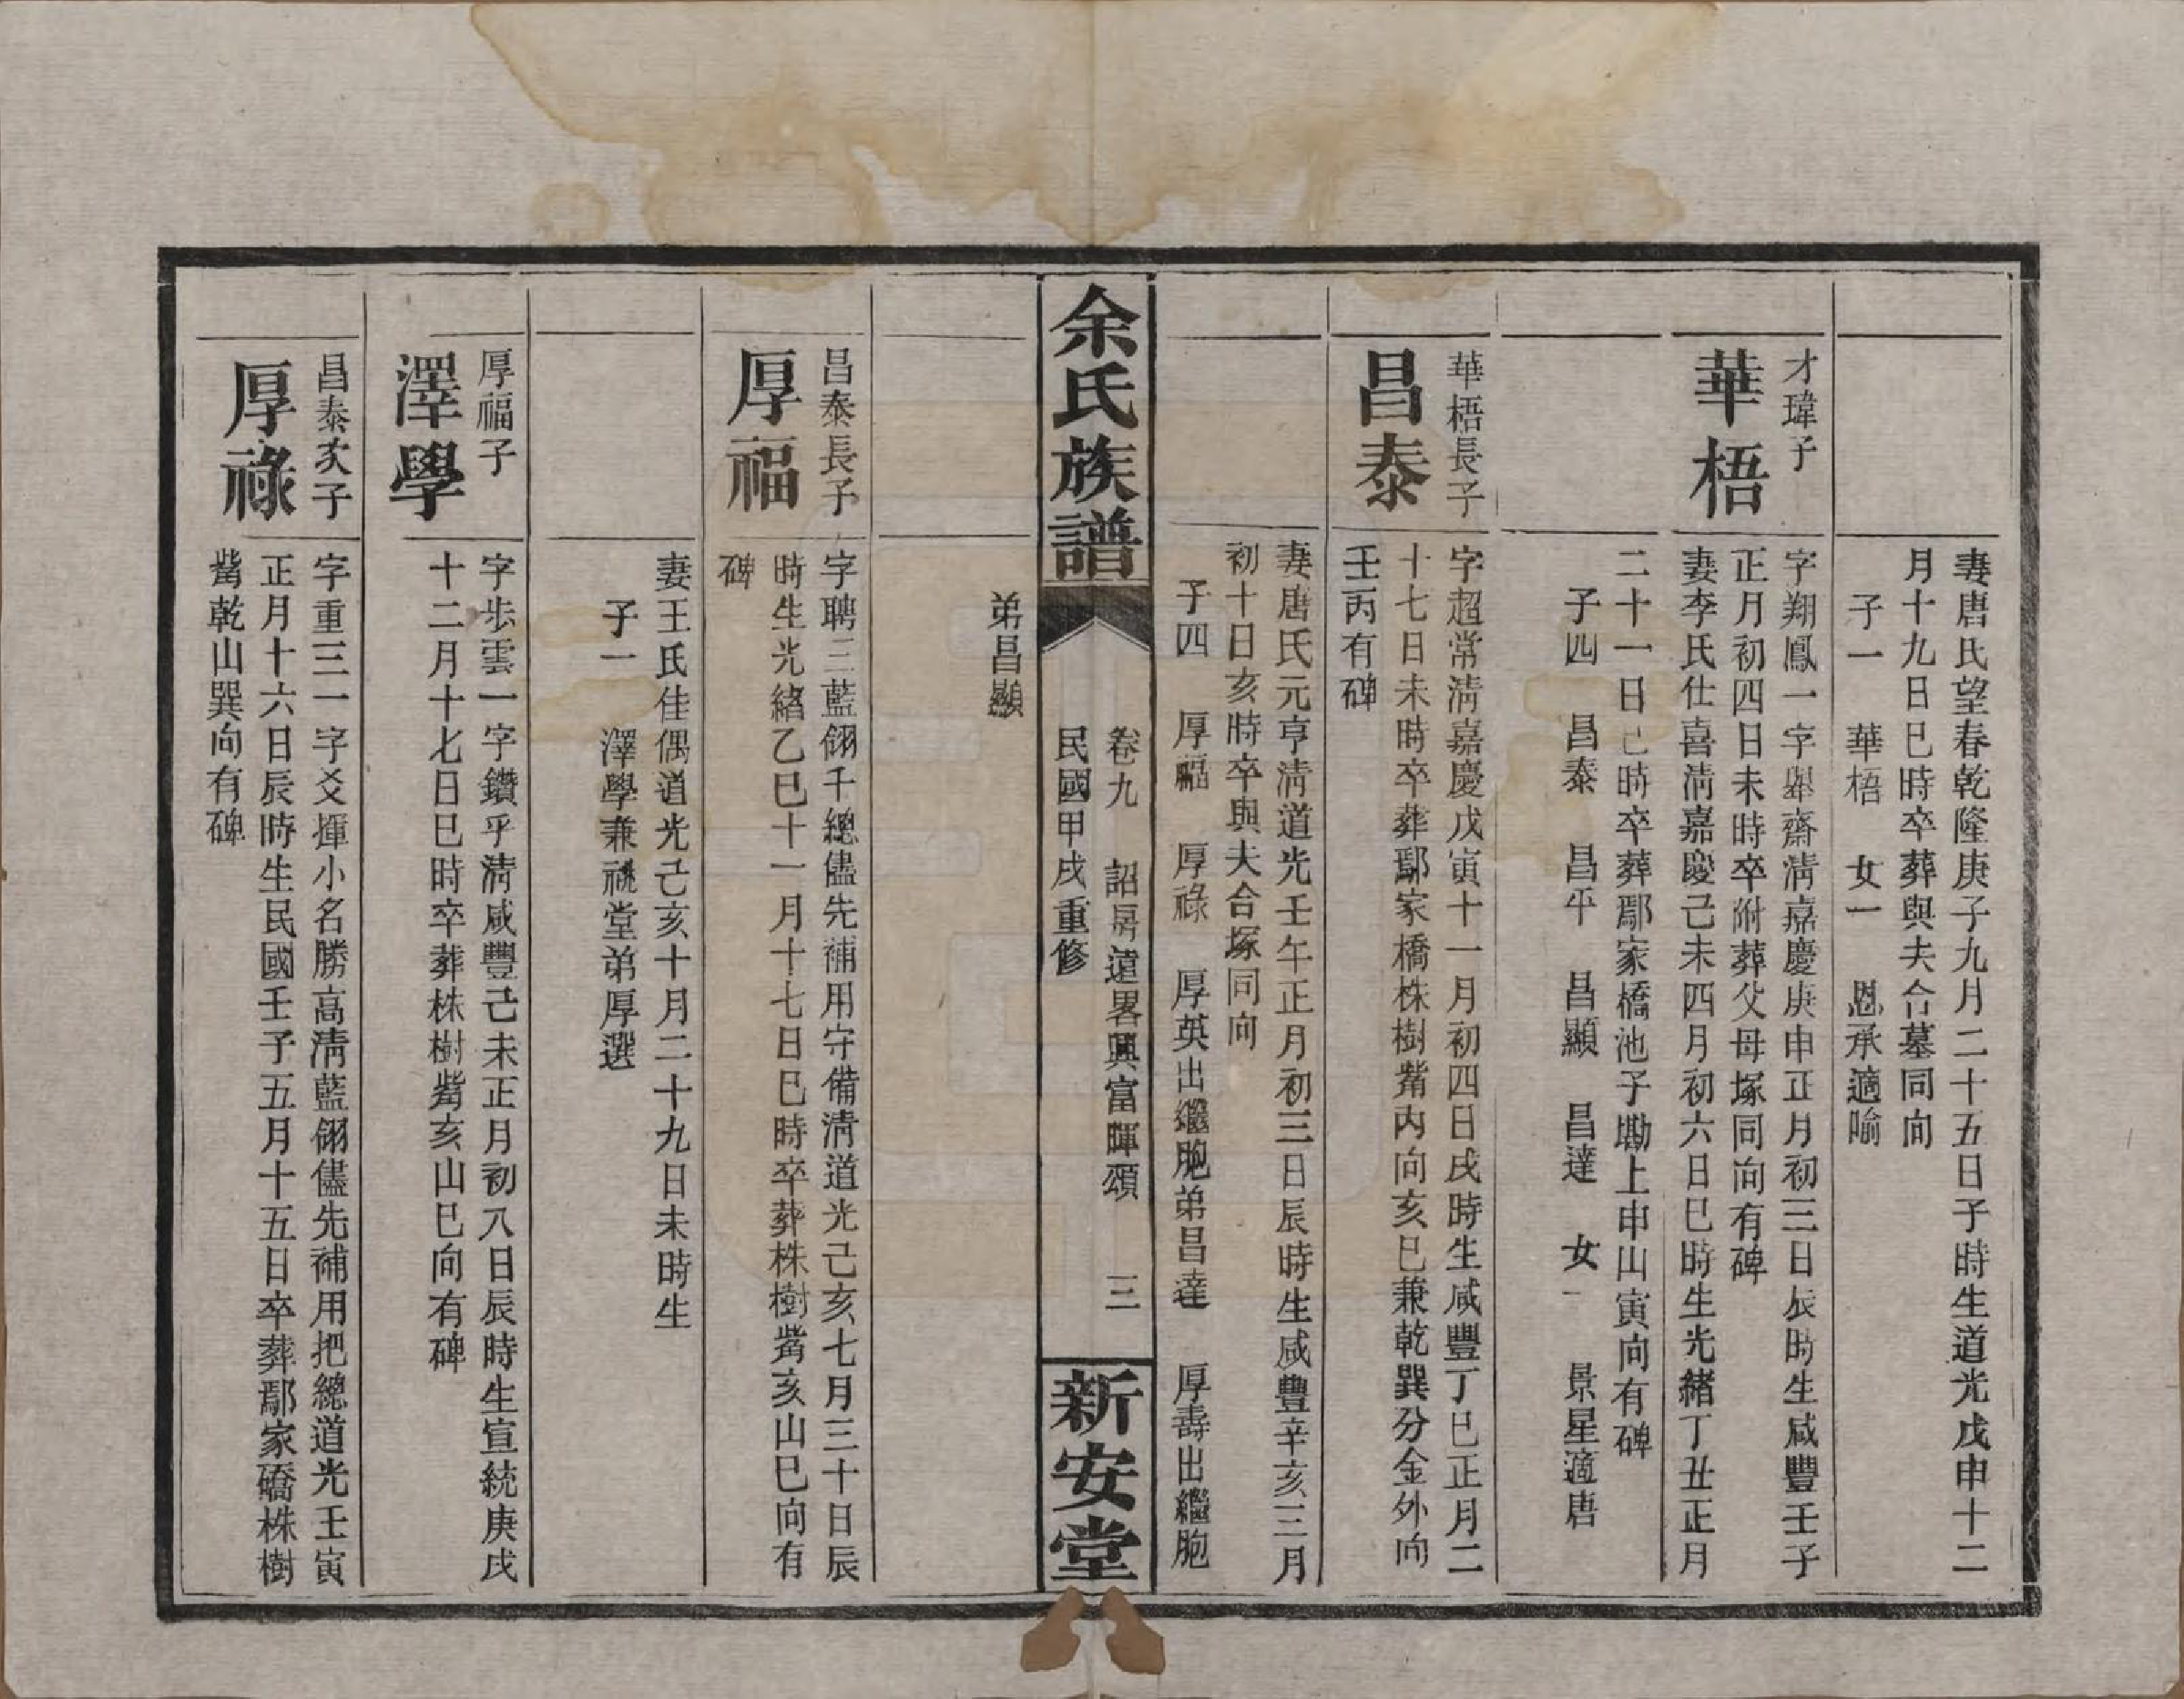 妻唐氏望春乾隆庚子九月二十五日子時生道光戊申十二
月十九日巳時卒葬與夫合墓同向
子一　華梧　女一　恩承適喻
才瑋子
華梧
字翔鳳一字羣齋淸嘉慶庚申正月初三日辰時生咸豐壬子
正月初四日未時卒附葬父母塚同向有碑
妻李氏仕喜淸嘉慶己未四月初六日巳時生光緒丁丑正月
二十一日巳時卒葬鄢家橋池子勘上申山寅向有碑
子四　昌泰　昌平　昌顯　昌達　女一　景星適唐
華梧長子
昌泰
字超常淸嘉慶戊寅十一月初四日戌時生咸豐丁巳正月二
十七日未時卒葬鄢家橋株樹觜内向亥巳兼乾巽分金外向
壬丙有碑
妻唐氏元亨淸道光壬午正月初三日辰時生咸豐辛亥三月
初十日亥時卒與夫合塚同向
子四　厚福　厚祿　厚英出繼胞弟昌達　厚壽出繼胞
余氏族譜
卷九　詔房遠畧興富暉頌　三
民國甲戌重修
新安堂
弟昌顯
昌泰長子
厚福
字聘三藍翎千總儘先補用守備淸道光己亥七月三十日辰
時生光緒乙巳十一月十七日巳時卒葬株樹觜亥山巳向有
碑
妻王氏佳偶道光己亥十月二十九日未時生
子一　澤學兼祧堂弟厚選
厚福子
澤學
字步雲一字鑽乎淸咸豐己未正月初八日辰時生宣統庚戌
十二月十七日巳時卒葬株樹觜亥山巳向有碑
昌泰次子
厚祿
字重三一字爻揮小名勝高淸藍翎儘先補用把總道光壬寅
正月十六日辰時生民國壬子五月十五日卒葬鄢家礄株樹
觜乾山巽向有碑